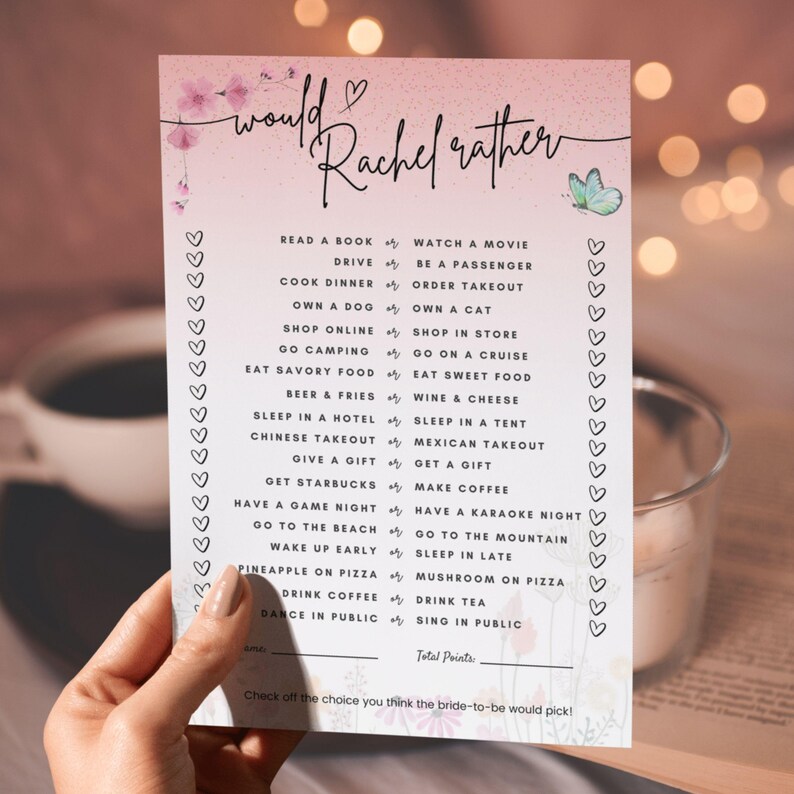 would
Rachel rather
READ A BOOK or WATCH A MOVIE
DRIVE or BE A PASSENGER
COOK DINNER or ORDER TAKEOUT
OWN A DOG or OWN A CAT
SHOP ONLINE or SHOP IN STORE
GO CAMPING or GO ON A CRUISE
EAT SAVORY FOOD or EAT SWEET FOOD
BEER & FRIES or WINE & CHEESE
SLEEP IN A HOTEL or SLEEP IN A TENT
CHINESE TAKEOUT or MEXICAN TAKEOUT
GIVE A GIFT or GET A GIFT
GET STARBUCKS or MAKE COFFEE
HAVE A GAME NIGHT or HAVE A KARAOKE NIGHT
GO TO THE BEACH or GO TO THE MOUNTAIN
WAKE UP EARLY or SLEEP IN LATE
PINEAPPLE ON PIZZA or MUSHROOM ON PIZZA
DRINK COFFEE or DRINK TEA
DANCE IN PUBLIC or SING IN PUBLIC
ame: Total Points:
Check off the choice you think the bride-to-be would pick!